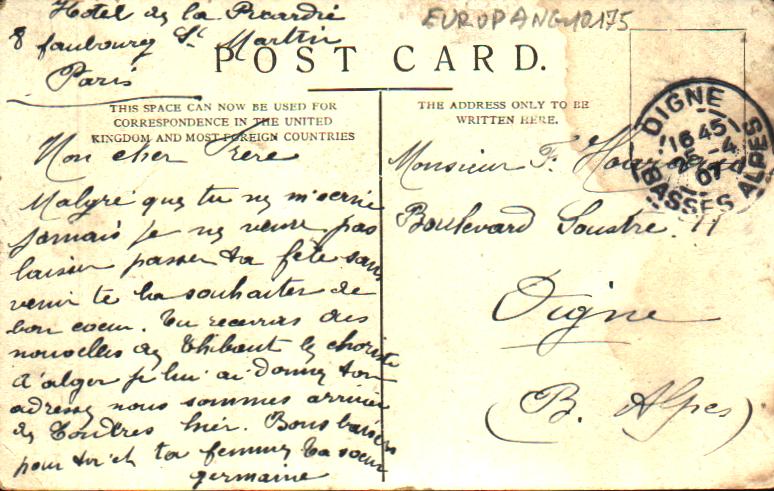 Hotel de la Picardie
8 faubourg St Martin
Paris
EUROPANG10175
POST CARD.
THIS SPACE CAN NOW BE USED FOR
CORRESPONDENCE IN THE UNITED
KINGDOM AND MOST FOREIGN COUNTRIES
Mon cher Frère
Malgré que tu ne m'écrive
jamais je ne veux pas
laisser passer ta fête sans
venir te la souhaiter de
bon coeur. Tu recevras des
nouvelles de Thibaut le choriste
d'alger je lui ai donné ton
adresse nous sommes arrivés
de Londres hier. Bons baisers
pour toi et ta femme ta soeur
germaine
THE ADDRESS ONLY TO BE
WRITTEN HERE.
Monsieur F.
Boulevard Soustre. 11
Digne
(B. Alpes)
DIGNE
16 45
29 -4
07
BASSES ALPES